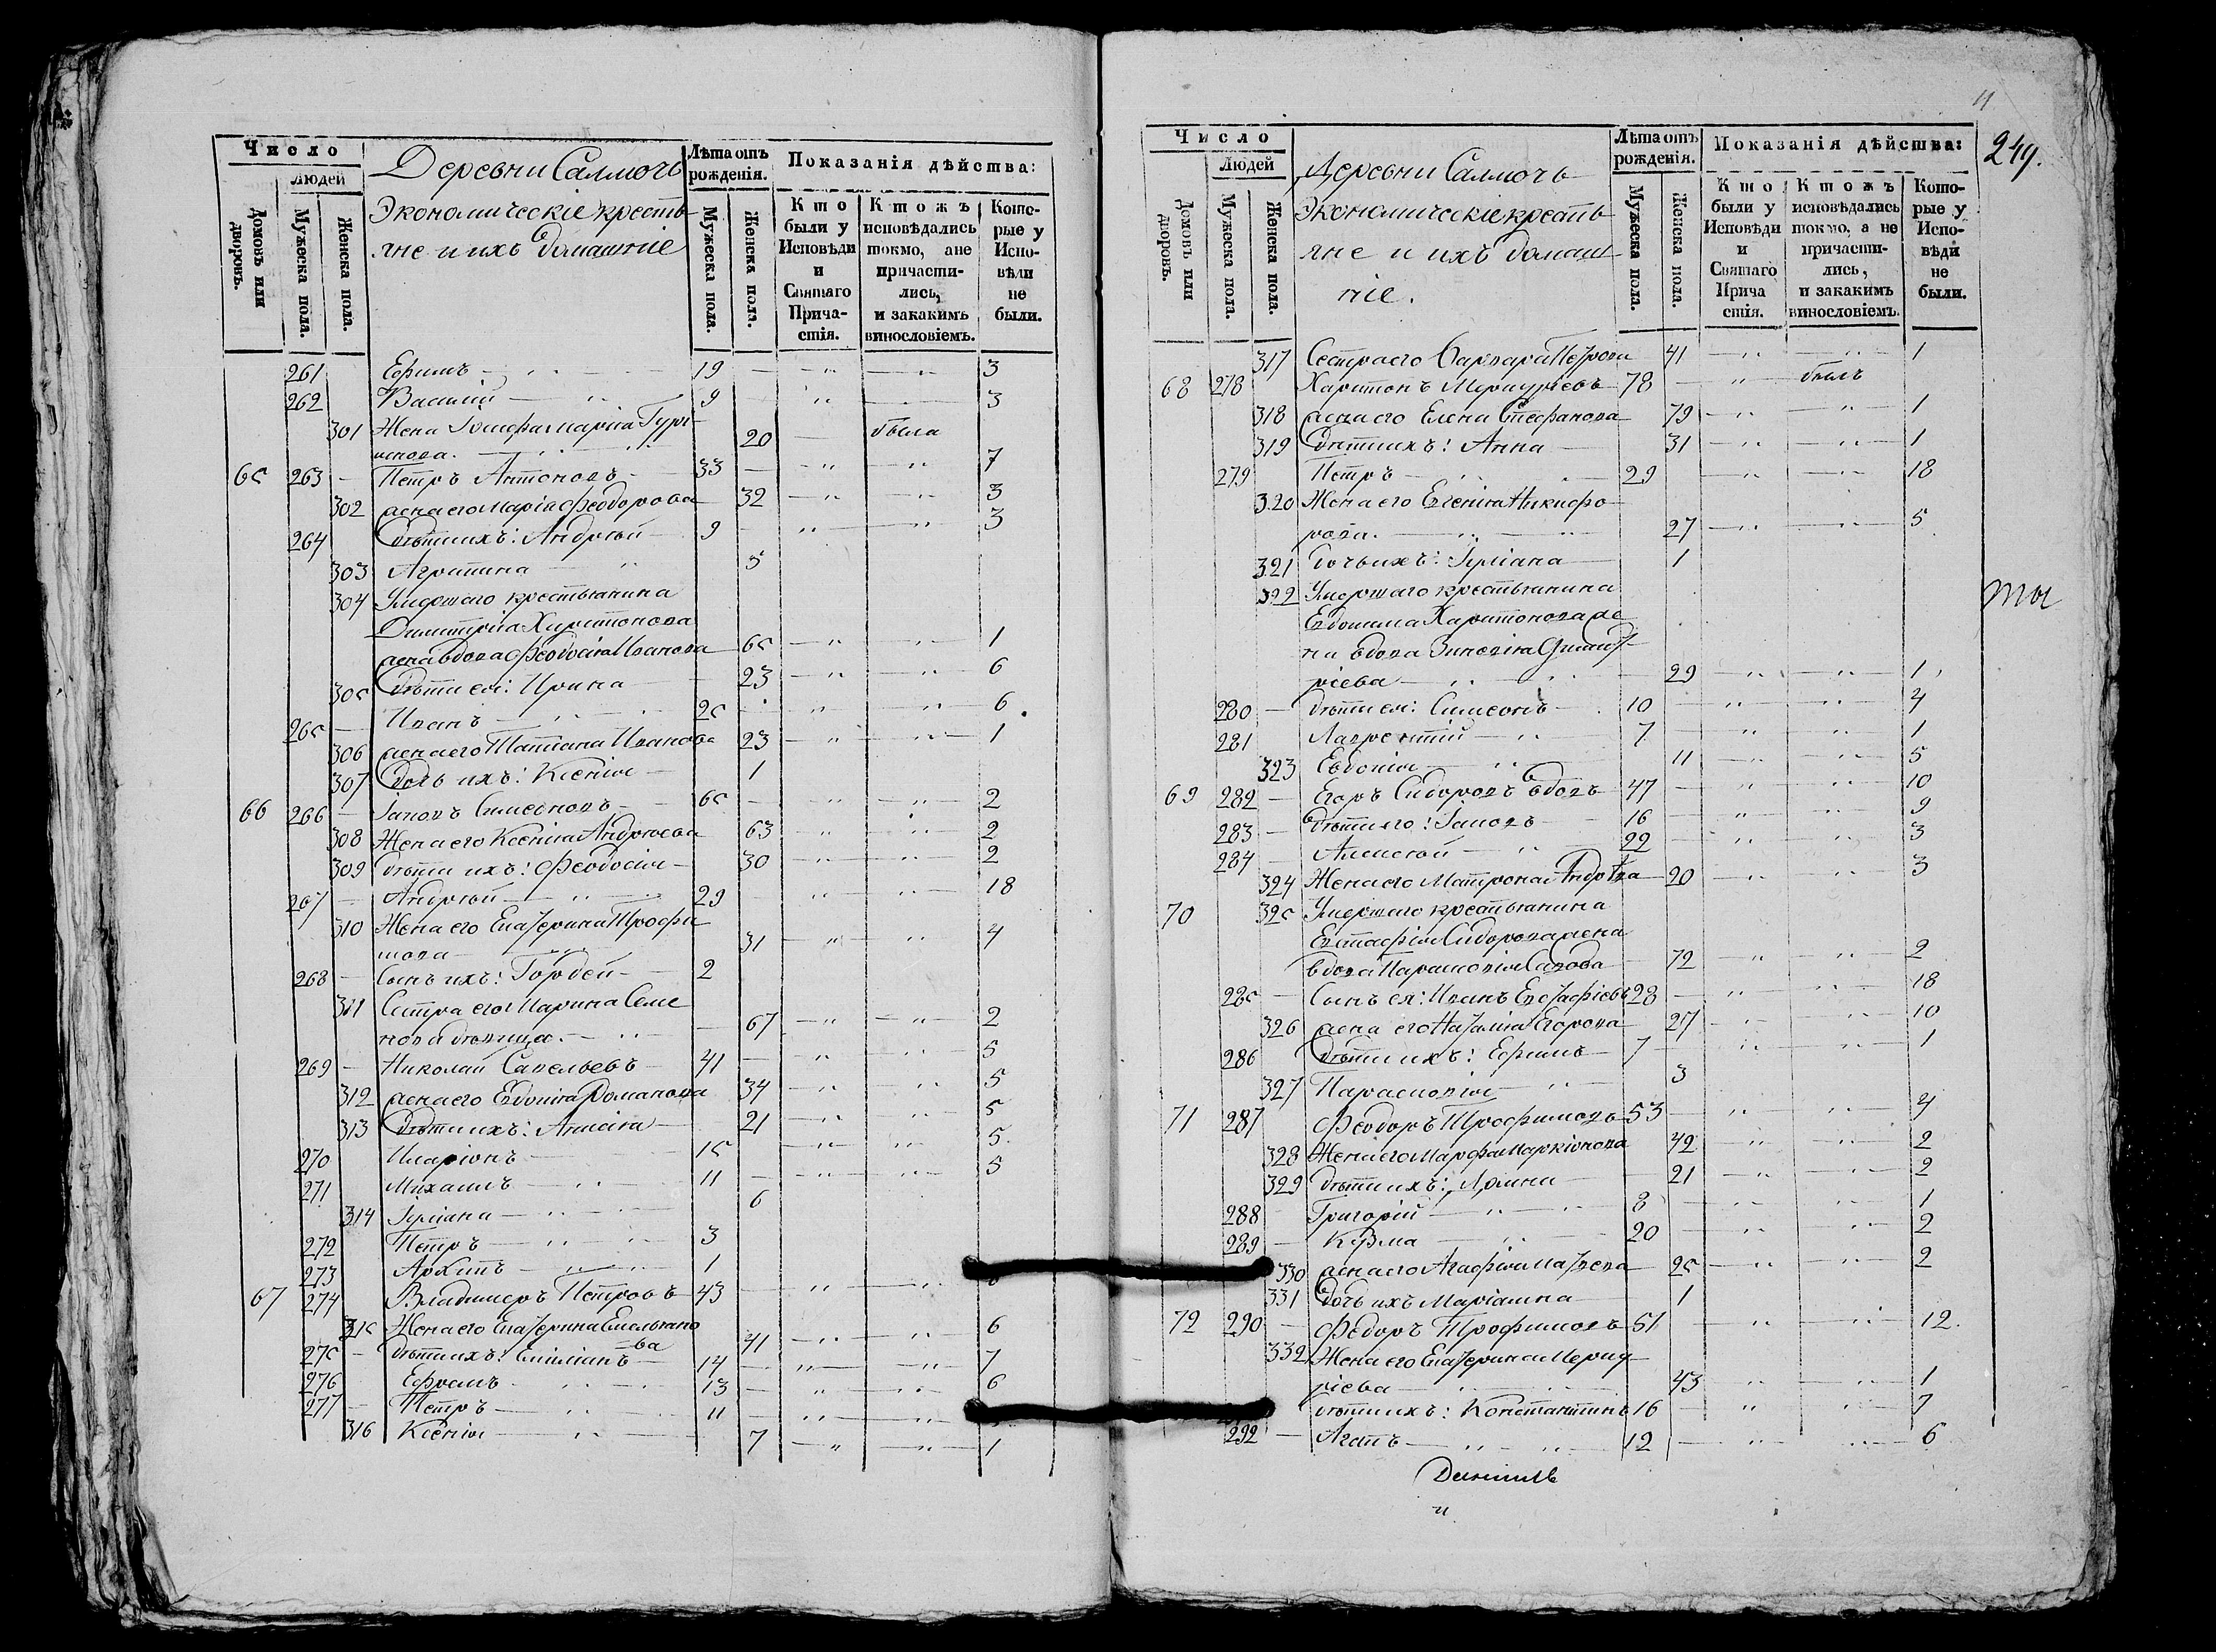 Число
Людей
Домовъ или дворовъ.
Мужеска пола.
Женска пола.
Деревни Салмочь
Экономическіе кресть-
яне и ихъ домашніе
Лѣта отъ рожденія.
Мужеска пола.
Женска пола.
Показанія дѣйства:
Кто были у Исповѣди и Святаго Прича-стія.
Ктожъ исповѣдались токмо, а не причасти-лись, и закакимъ винословіемъ.
Кото-рые у Испо-вѣди не были.
261 Ефимъ 19 3
262 Василій 9 3
301 Жена Іосифа Марія Гурі-
20 была
65 263 Петръ Антоновъ 33 7
302 жена его Марія Феодорова 32 3
264 Дѣти ихъ: Андрей 9 3
303 Агрипина 5
304 Умершаго крестьянина
Димитрія Харитонова
жена вдова Феодосія Иванова 65 1
305 Дѣти ея: Ирина 23 6
265 Иванъ 25 6
306 жена его Татіана Иванова 23 1
307 Дочь ихъ: Ксенія 1
66 266 Іаковъ Симеоновъ 65 2
308 Жена его Ксенія Андреева 63 2
309 Дѣти ихъ: Феодосія 30 2
267 Андрей 29 18
310 Жена его Екатерина Трофи
мова 31 4
268 Сынъ ихъ: Гордей 2
311 Сестра его Марина Семе
нова дѣвица. 67 2
269 Николай Савельевъ 41 5
312 жена его Евдокія Романова 34 5
313 Дѣти ихъ: Анисія 21 5
270 Иларіонъ 15 5
271 Михаилъ 11 5
314 Іуліана 6
272 Петръ 3
273 Архипъ 1
67 274 Владимеръ Петровъ 43 6
315 Жена его Екатерина Емельяно
ва 41 6
275 Дѣти ихъ: Емиліанъ 14 7
276 Ефремъ 13 6
277 Петръ 11
316 Ксенія 7 1
249.
Число
Людей
Домовъ или дворовъ.
Мужеска пола.
Женска пола.
Деревни Салмочь
Экономическіе кресть
яне и ихъ домаш
ніе.
Лѣта отъ рожденія.
Мужеска пола.
Женска пола.
Показанія дѣйства:
Кто были у Исповѣди и Святаго Прича стія.
Ктожъ исповѣдались токмо, а не причасти-лись, и закакимъ винословіемъ.
Кото-рые у Испо-вѣди не были.
317 Сестра его Варвара Петрова 41 1
68 278 Харитонъ Меркурьевъ 78 былъ
318 жена его Елена Стефанова 79 1
319 Дѣти ихъ: Анна 31 1
279 Петръ 29 18
320 Жена его Евгенія Никифо
рова. 27 5
321 Дочь ихъ: Іуліана 1
322 Умершаго крестьянина
Евдокима Харитонова же
на вдова Зиновія
ріева 29 1
280 Дѣти ея: Симеонъ 10 4
281 Лаврентій 7 1
323 Евдокія 11 5
69 282 Егоръ Сидоровъ вдовъ 47 10
283 Дѣти его: Іаковъ 16 9
284 Алексей 22 3
324 Жена его Матрона Андреева 20 3
70 325 Умершаго крестьянина
Евстафія Сидорова жена
вдова Парасковія Савова 72 2
285 Сынъ ея: Иванъ Евстафіевъ 28 18
326 жена его Наталія Егорова 27 10
286 Дѣти ихъ: Ефимъ 7 1
327 Парасковія 3
71 287 Феодоръ Трофимовъ 53 4
328 Жена его Марфа Маркіонова 42 2
329 Дѣти ихъ: Арина 21 2
288 Григорій 8 1
289 Кузма 20 2
330 жена его Агафія Матвева 25 2
331 Дочь ихъ Маріамна 1
72 290 Федоръ Трофимовъ 51 12
332 Жена его Екатерина Мерку
ріева 43 1
Дѣти ихъ: Константинъ 16 7
292 Агапъ 12 6
ты